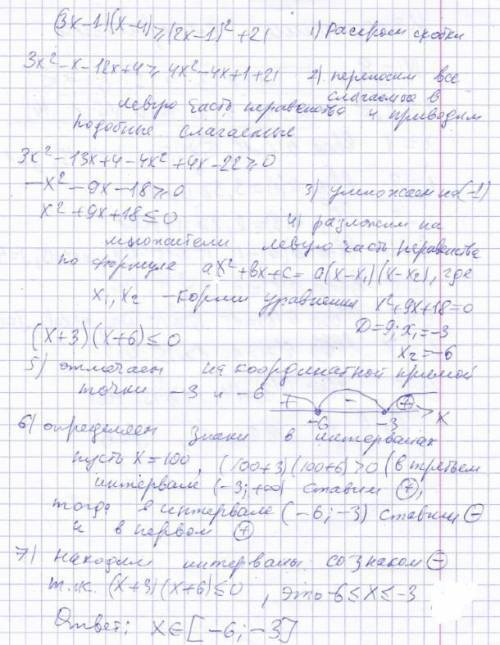 (3x-1)(x-4) ≥ (2x-1)² + 21   1) Раскроем скобки
3x² - x - 12x + 4 ≥ 4x² - 4x + 1 + 21   2) переносим все
слагаемые в
левую часть неравенства и приводим
подобные слагаемые
3x² - 13x + 4 - 4x² + 4x - 22 ≥ 0
-x² - 9x - 18 ≥ 0   3) умножаем на (-1)
x² + 9x + 18 ≤ 0   4) разложим на
множители левую часть неравенства
по формуле ax² + bx + c = a(x-x₁)(x-x₂), где
x₁, x₂ - корни уравнения x² + 9x + 18 = 0
D = 9; x₁ = -3
x₂ = -6
(x+3)(x+6) ≤ 0
5) отмечаем на координатной прямой
точки -3 и -6
+ - +
-6 -3 x
6) определяем знаки в интервалах
пусть x = 100, (100+3)(100+6) > 0 (в третьем
интервале (-3; +∞) ставим +,
тогда в интервале (-6; -3) ставим -
и в первом +
7) находим интервалы со знаком -
т.к. (x+3)(x+6) ≤ 0, это -6 ≤ x ≤ -3
Ответ: x ∈ [-6; -3]